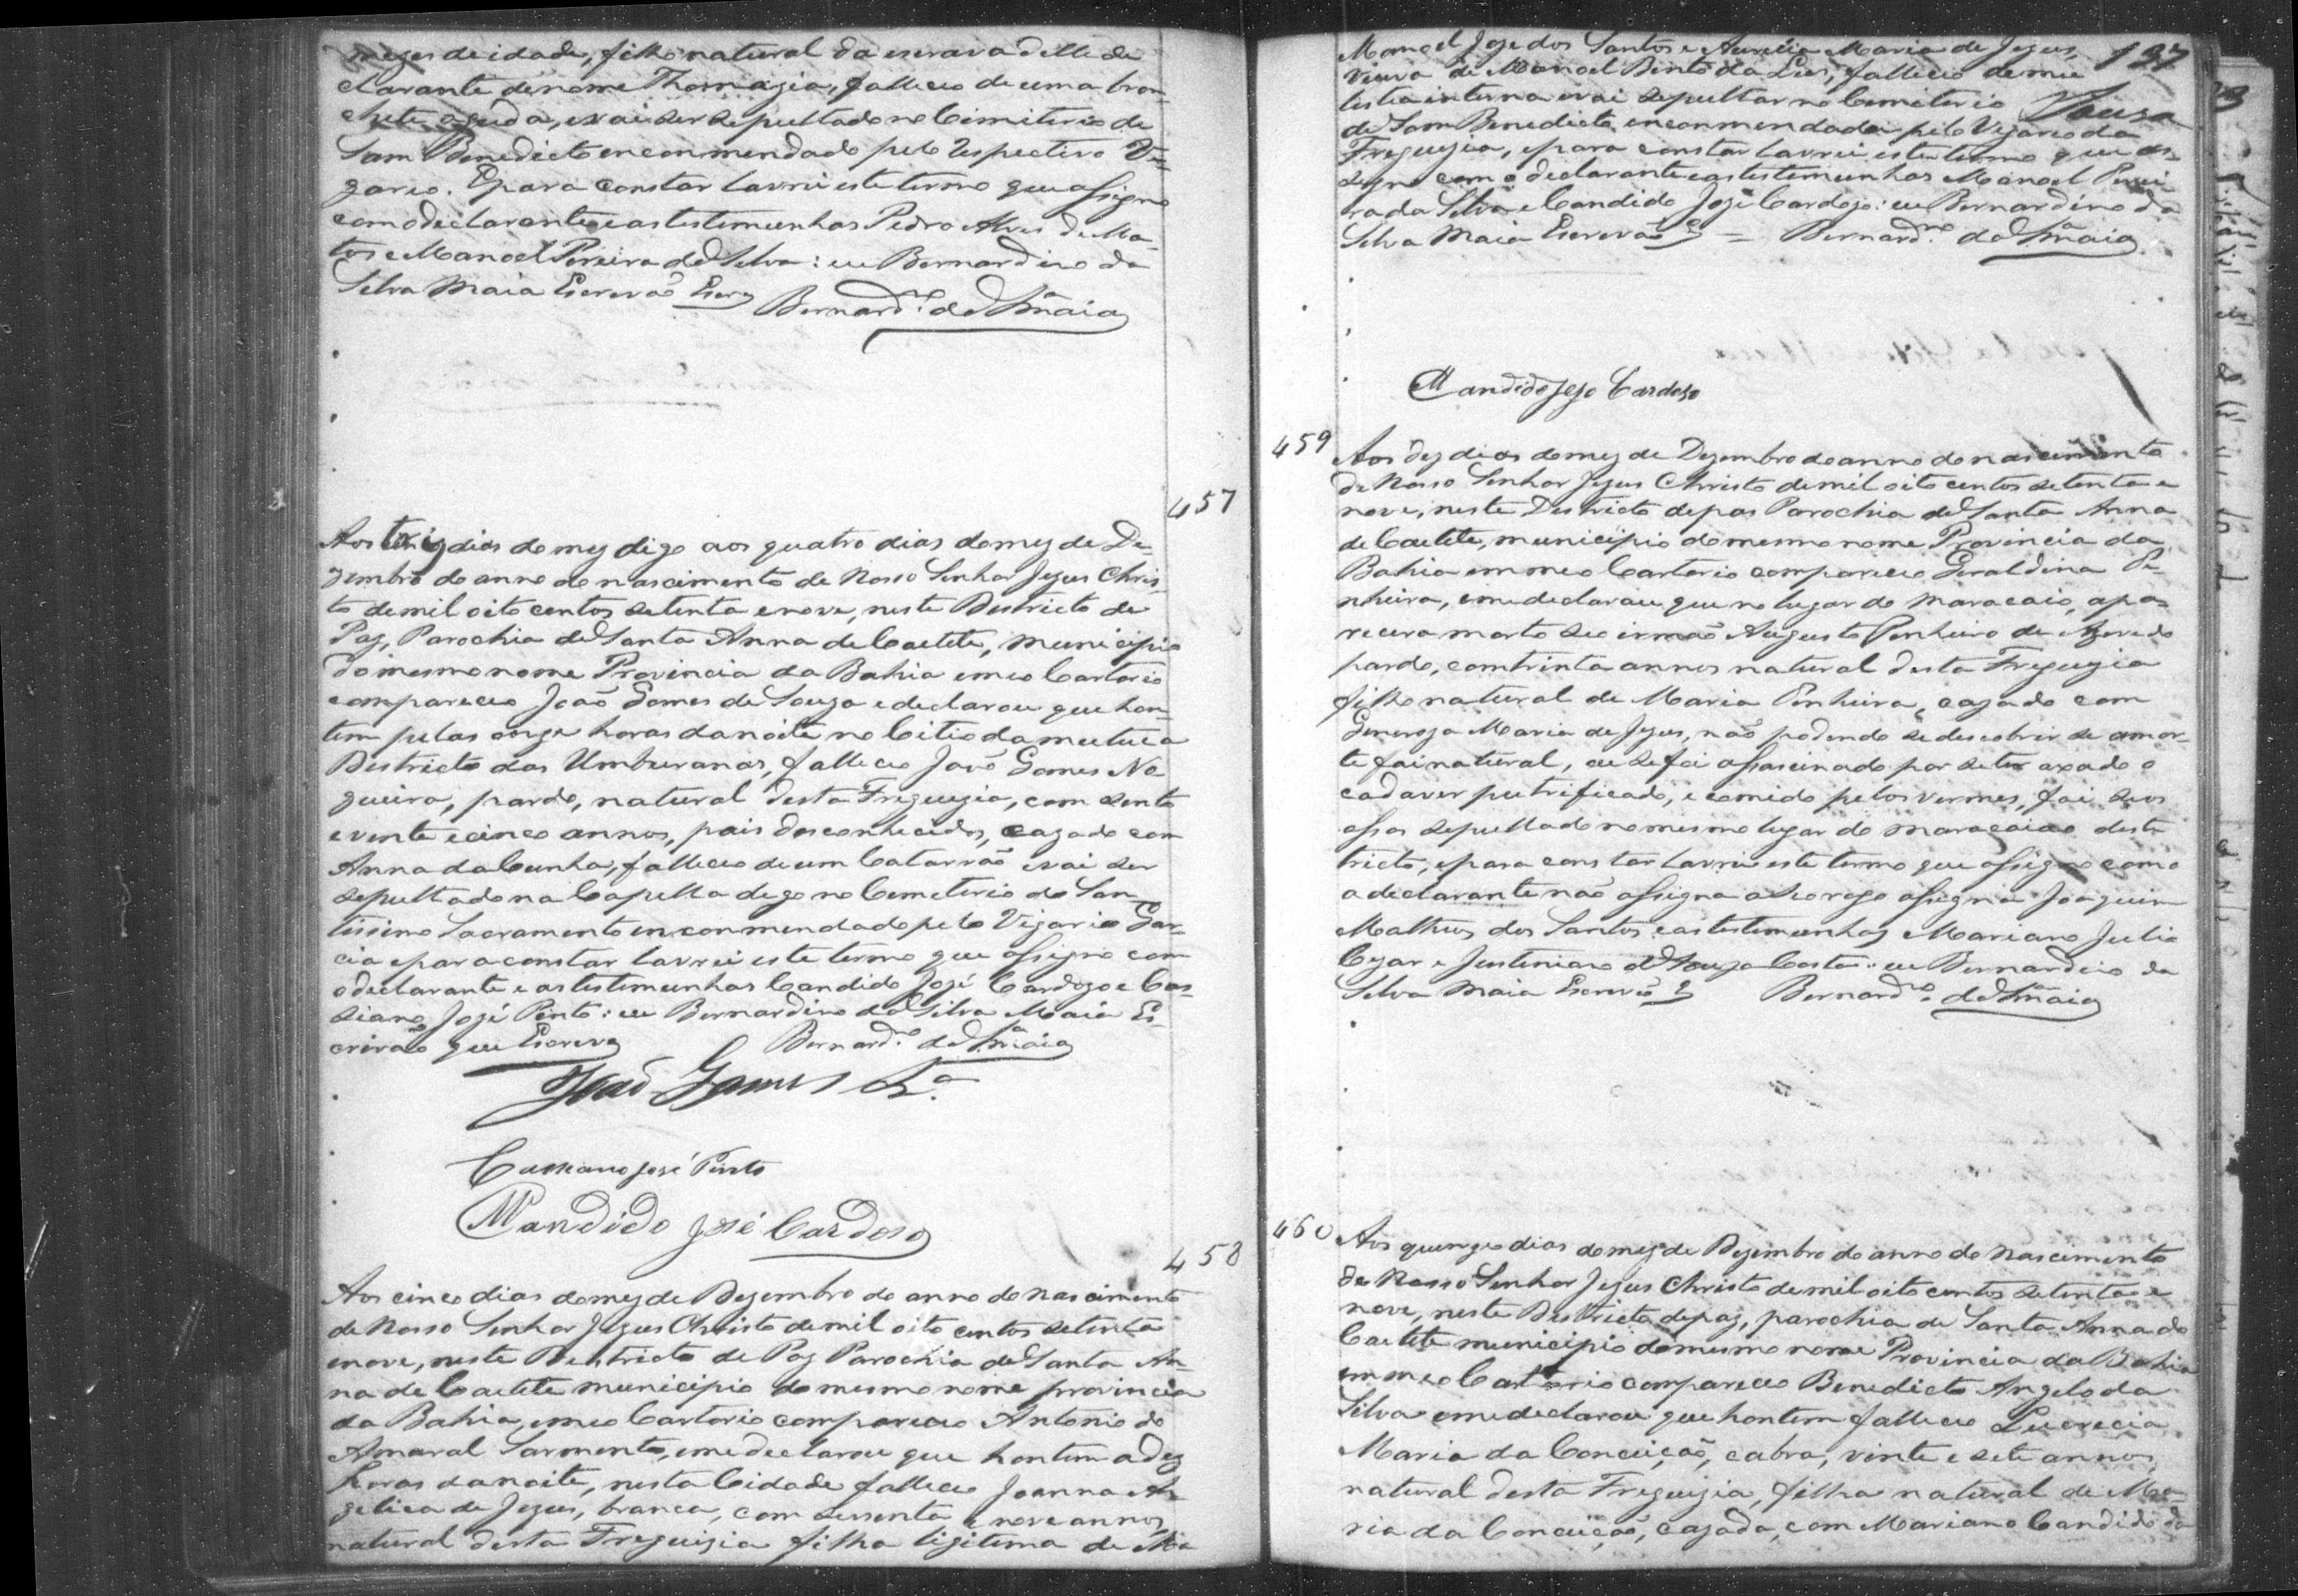 mezes de idade, filho natural da escrava delle de
clarante de nome Thomazia, falleceo de uma bron
chete aguda, e vai ser sepultado no Cimiterio de
Sam Benedicto enconmendado pelo respectivo Vi-
gario. E para constar lavrei este termo que assigno
com o declarante e as testemunhas Pedro Alves de Ma-
tos e Manoel Pereira da Silva: eu Bernardino da
Silva Maia Escrevão Escrevy Bernardno da Sa Maia
457
Aos trez dias do mez digo aos quatro dias do mez de De-
zembro do anno do nascimento de Nosso Senhor Jezus Chris-
to de mil oito centos setenta e nove, neste Destricto de
Paz, Parochia de Santa Anna de Caetete, municipio
do mesmo nome Provincia da Bahia em meo Cartorio
compareceo João Gomes de Souza e declarou que hon-
tem pelas onze horas da noite no Citio da mutuca
Destricto das Umburanas, falleceo João Gomes No
gueira, pardo, natural desta Freguezia, com sento
e vinte e cinco annos, pais desconhecidos, cazado com
Anna da Cunha, falleceo de um Catarrão e vai ser
sepultado na Capella digo no Cemeterio do San
tissimo Sacramento enconmendado pelo Vigario Gar-
cia e para constar lavrei este termo que assigno com
o declarante e as testemunhas Candido José Cardozo e Cas-
siano José Pinto: eu Bernardino da Silva Maia Es-
crivão que Escrevy Bernardno da Sa Maia
João Gomes Sa
Cassiano José Pinto
Candido José Cardoso
458
Aos cinco dias do mez de Dezembro do anno do nascimento
de Nosso Senhor Jezus Christo de mil oito centos setenta
e nove, neste Destricto de Paz Parochia de Santa An-
na de Caetete municipio do mesmo nome provincia
da Bahia, em meo Cartorio compareceo Antonio do
Amaral Sarmento, e me declarou que hontem a dez
horas da noite, nesta Cidade falleceo Joanna An-
gelica de Jezus, branca, com sessenta e nove annos
natural desta Freguizia filha ligitima de Ma
137
Manoel Joze dos Santos e Aurelia Maria de Jezus,
viuva de Manoel Bento da Luz, falleceo de mu
lestia interna e vai sepultar no Cemiterio Souza
de Sam Benedicto enconmendada pelo Vigario da
Freguezia, e para constar lavrei este termo que as-
signo com o declarante e as testemunhas Manoel Perei-
ra da Silva e Candido José Cardozo: eu Bernardino da
Silva Maia Escrevão = Bernardno da Sa Maia
Candido Joze Cardoso
459
Aos dez dias do mez de Dezembro do anno do nascimento
de Nosso Senhor Jezus Christo de mil oito centos setenta e
nove, neste Destricto de pas Parochia de Santa Anna
de Caetete, municipio do mesmo nome Provincia da
Bahia em meo Cartorio compareceo Geraldina Pi-
nheira, e me declarou que no lugar do Maracaio, apa-
recera morto seo irmão Augusto Pinheiro de Azevedo
pardo, com trinta annos natural desta Freguezia
filho natural de Maria Pinheira, cazado com
Generoza Maria de Jezus, não podendo se descobrir se a mor-
te foi natural, ou se foi assascinado por se ter axado o
cadaver putrificado, e comido pelos vermes, foi seos
ossos sepultado no mesmo lugar do Maracaio deste des
tricto, e para constar lavrei este termo que assigno como
a declarante não assigna a seo rogo assigna Joaquim
Matheus dos Santos e as testemunhas Mariano Julio
Cezar e Justiniano de Souza Costa: eu Bernardino da
Silva Maia Escrevão Bernardno da Sa Maia
460
Aos quinze dias do mez de Dezembro do anno do nascimento
de Nosso Senhor Jezus Christo de mil oito centos setenta e
nove, neste Destricto de paz, parochia de Santa Anna do
Caetete municipio do mesmo nome Provincia da Bahia
em meo Cartorio compareceo Benedicto Angelo da
Silva e me declarou que hontem falleceo Lucrecia
Maria da Conceição, cabra, vinte e sete annos
natural desta Freguizia, filha natural de Ma-
ria da Conceição, cazada, com Mariano Candido da